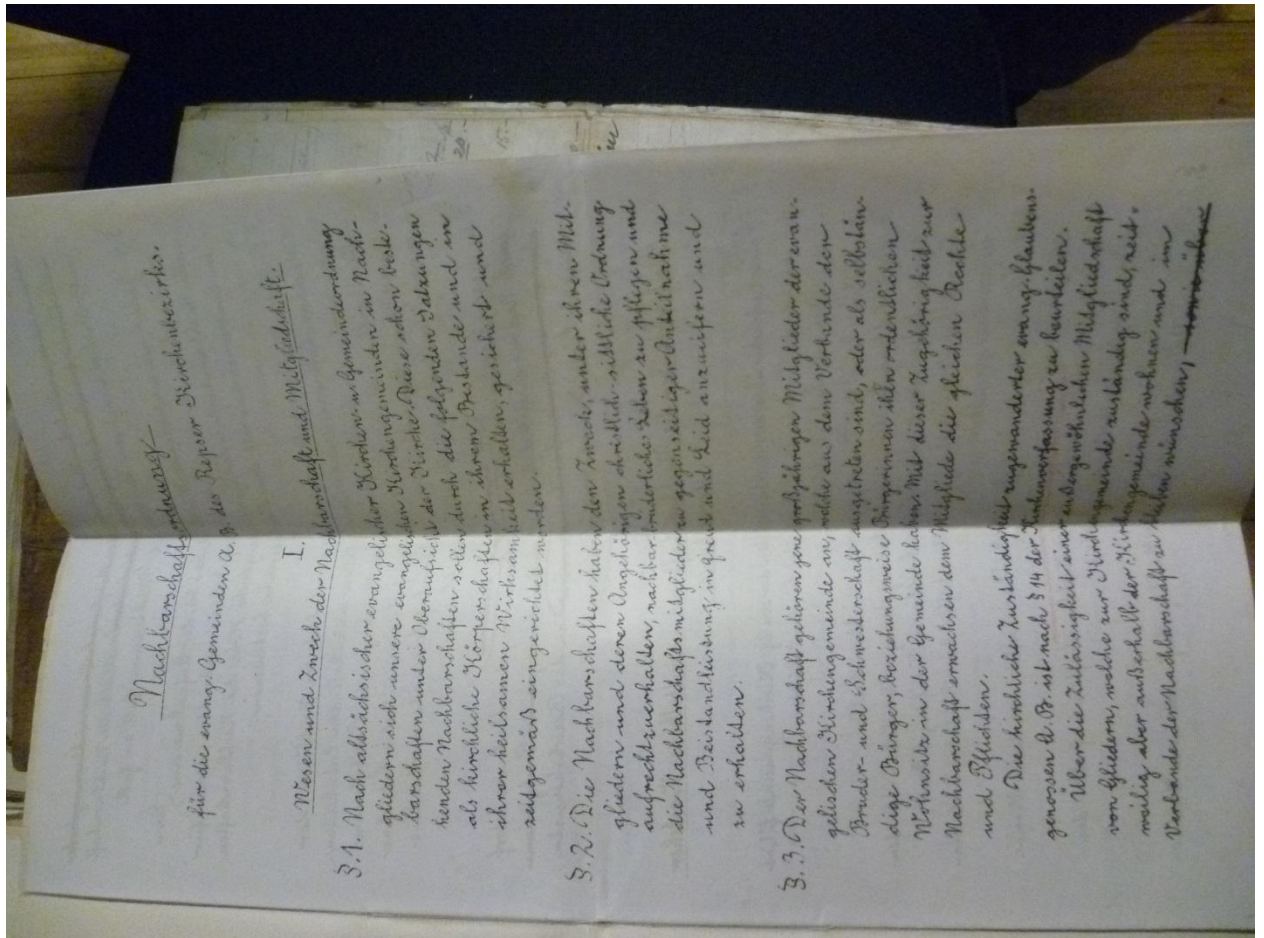 Nachbarschaftsordnung
für die evang. Gemeinden A. B. des Repser Kirchenbezirks.
I.
Wesen und Zweck der Nachbarschaft und Mitgliedschaft.
§.1. Nach altsächsischer evangelischer Kirchen- u. Gemeindeordnung
gliedern sich unsere evangelischen Kirchengemeinden in Nach-
barschaften unter Oberaufsicht der Kirche. Diese schon beste-
henden Nachbarschaften sollen durch die folgenden Satzungen
als kirchliche Körperschaften in ihrem Bestande und in
ihrer heilsamen Wirksamkeit erhalten, gesichert und
zeitgemäß eingerichtet werden.
§.2. Die Nachbarschaften haben den Zweck, unter ihren Mit-
gliedern und deren Angehörigen christlich-sittliche Ordnung
aufrechtzuerhalten, nachbar-brüderliches Leben zu pflegen und
die Nachbarschaftsmitglieder zu gegenseitiger Anteilnahme
und Beistandleistung in Freud und Leid anzueifern und
zu erhalten.
§.3. Der Nachbarschaft gehören jene großjährigen Mitglieder der evan-
gelischen Kirchengemeinde an, welche aus dem Verbande der
Bruder- und Schwesterschaft ausgetreten sind, oder als selbstän-
dige Bürger, beziehungsweise Bürgerinnen ihren ordentlichen
Wohnsitz in der Gemeinde haben. Mit dieser Zugehörigkeit zur
Nachbarschaft erwachsen dem Mitgliede die gleichen Rechte
und Pflichten.
Die kirchliche Zuständigkeit zugewanderter evang. Glaubens-
genossen A. B. ist nach § 14 der Kirchenverfassung zu beurteilen.
Über die Zulässigkeit einer außergewöhnlichen Mitgliedschaft
von Gliedern, welche zur Kirchengemeinde zuständig sind, zeit-
weilig aber außerhalb der Kirchengemeinde wohnen und in
Verbande der Nachbarschaft zu bleiben wünschen,